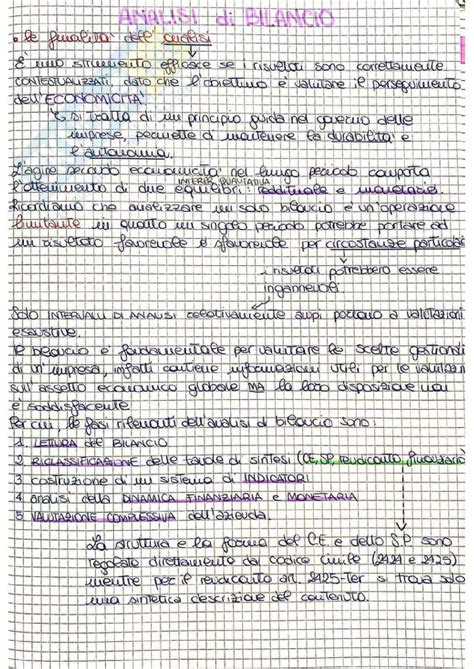 ANALISI di BILANCIO
• le finalità dell'analisi
È uno strumento efficace se i risultati sono correttamente
CONTESTUALIZZATI, dato che l'obiettivo è valutare il perseguimento
dell'ECONOMICITÀ
si tratta di un principio guida nel governo delle
imprese, permette di mantenere la durabilità e
l'autonomia.
L'agire secondo economicità nel lungo periodo comporta
l'ottenimento di due equilibri: reddituale e monetario.
Ricordiamo che analizzare un solo bilancio è un'operazione
limitante in quanto un singolo periodo potrebbe portare ad
un risultato favorevole e sfavorevole per circostanze particolari
i risultati potrebbero essere
ingannevoli
Solo INTERVALLI DI ANALISI relativamente ampi portano a valutazioni
esaustive.
Il bilancio è fondamentale per valutare le scelte gestionali
di un'impresa, infatti contiene informazioni utili per le valutazioni
sull'assetto economico globale MA la loro disposizione non
è soddisfacente
Per cui, le fasi rilevanti dell'analisi di bilancio sono:
1 LETTURA del BILANCIO
2 RICLASSIFICAZIONE delle tavole di sintesi (CE, SP, rendiconto finanziario)
3 costruzione di un sistema di INDICATORI
4 analisi della DINAMICA FINANZIARIA e MONETARIA
5 VALUTAZIONE COMPLESSIVA dell'azienda.
La struttura e la forma del C.E e dello S.P sono
regolate direttamente dal codice civile (2424 e 2425)
mentre per il rendiconto art. 2425-Ter si trova solo
una sintetica descrizione del contenuto.